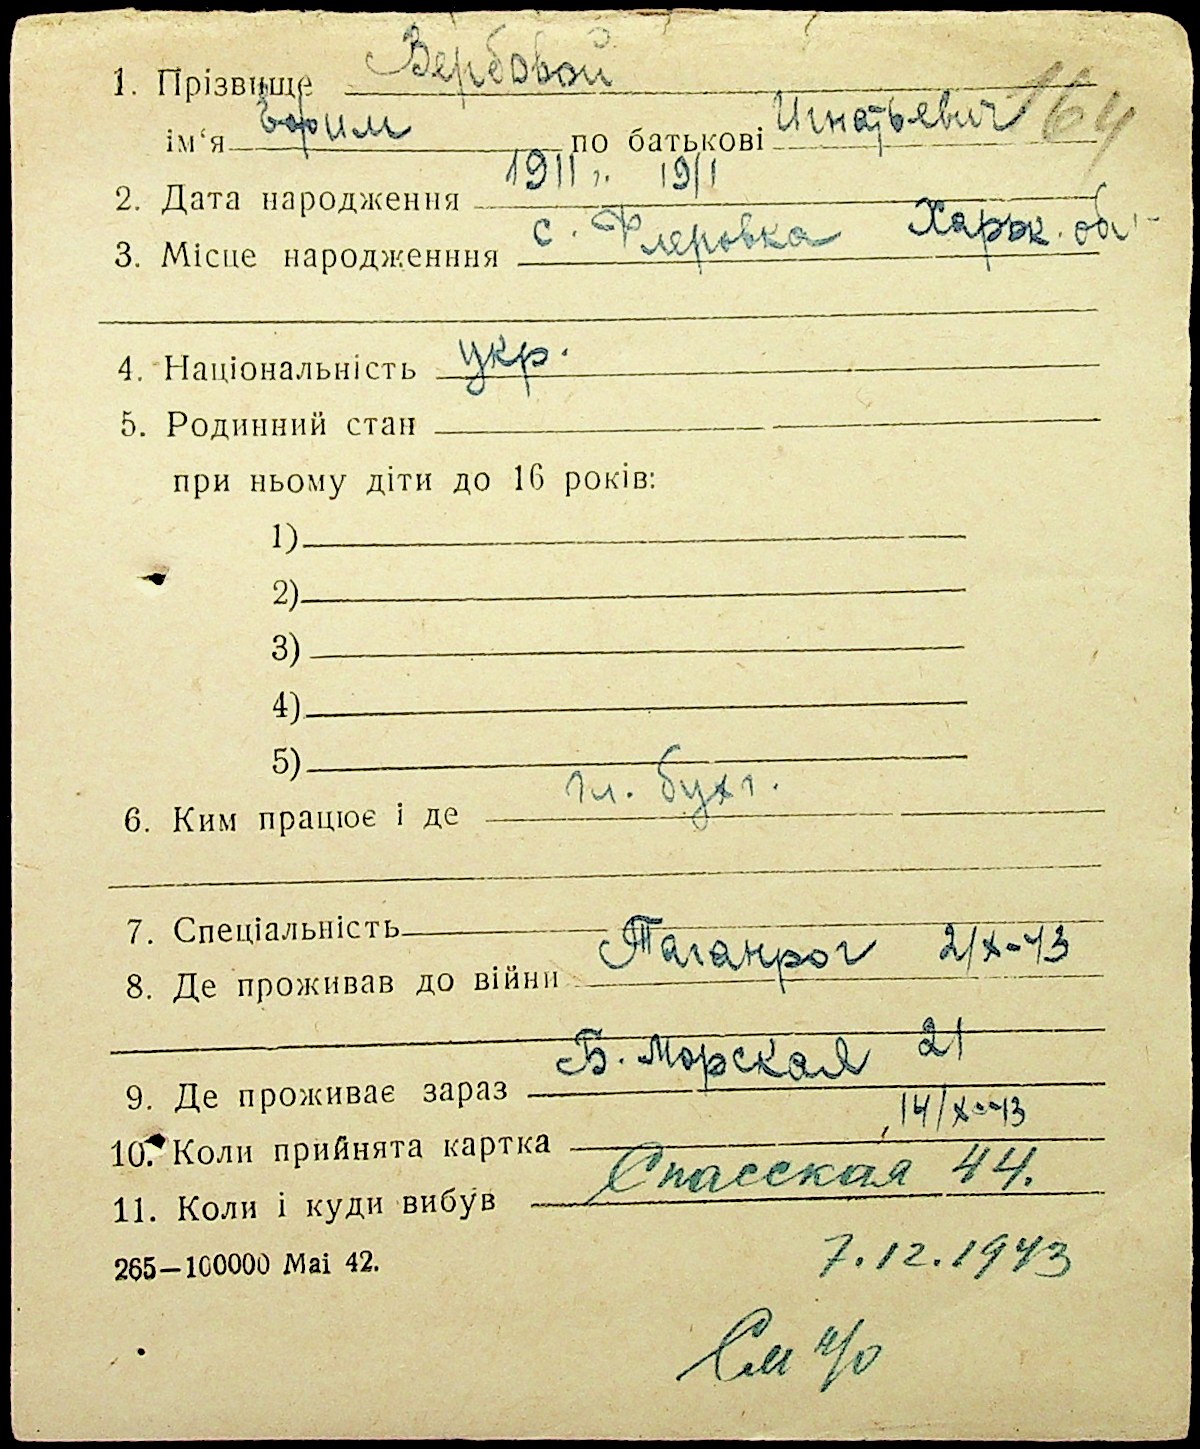 1. Прізвище Вербовой
ім‘я по батькові Игнатьевич 164
2. Дата народження 1911 1911
3. Місце народженння с. Флеровка Харьк. обл.
4. Національність укр.
5. Родинний стан
при ньому діти до 16 років:
1)
2)
3)
4)
5)
6. Ким працює і де гл. бухг.
7. Спеціальність
8. Де проживав до війни Таганрог 2/X-43
9. Де проживає зараз Б. Морская 21
10. Коли прийнята картка 14/X-43
11. Коли і куди вибув Спасская 44.
265—100000 Mai 42.
7.12.1943
См н/о